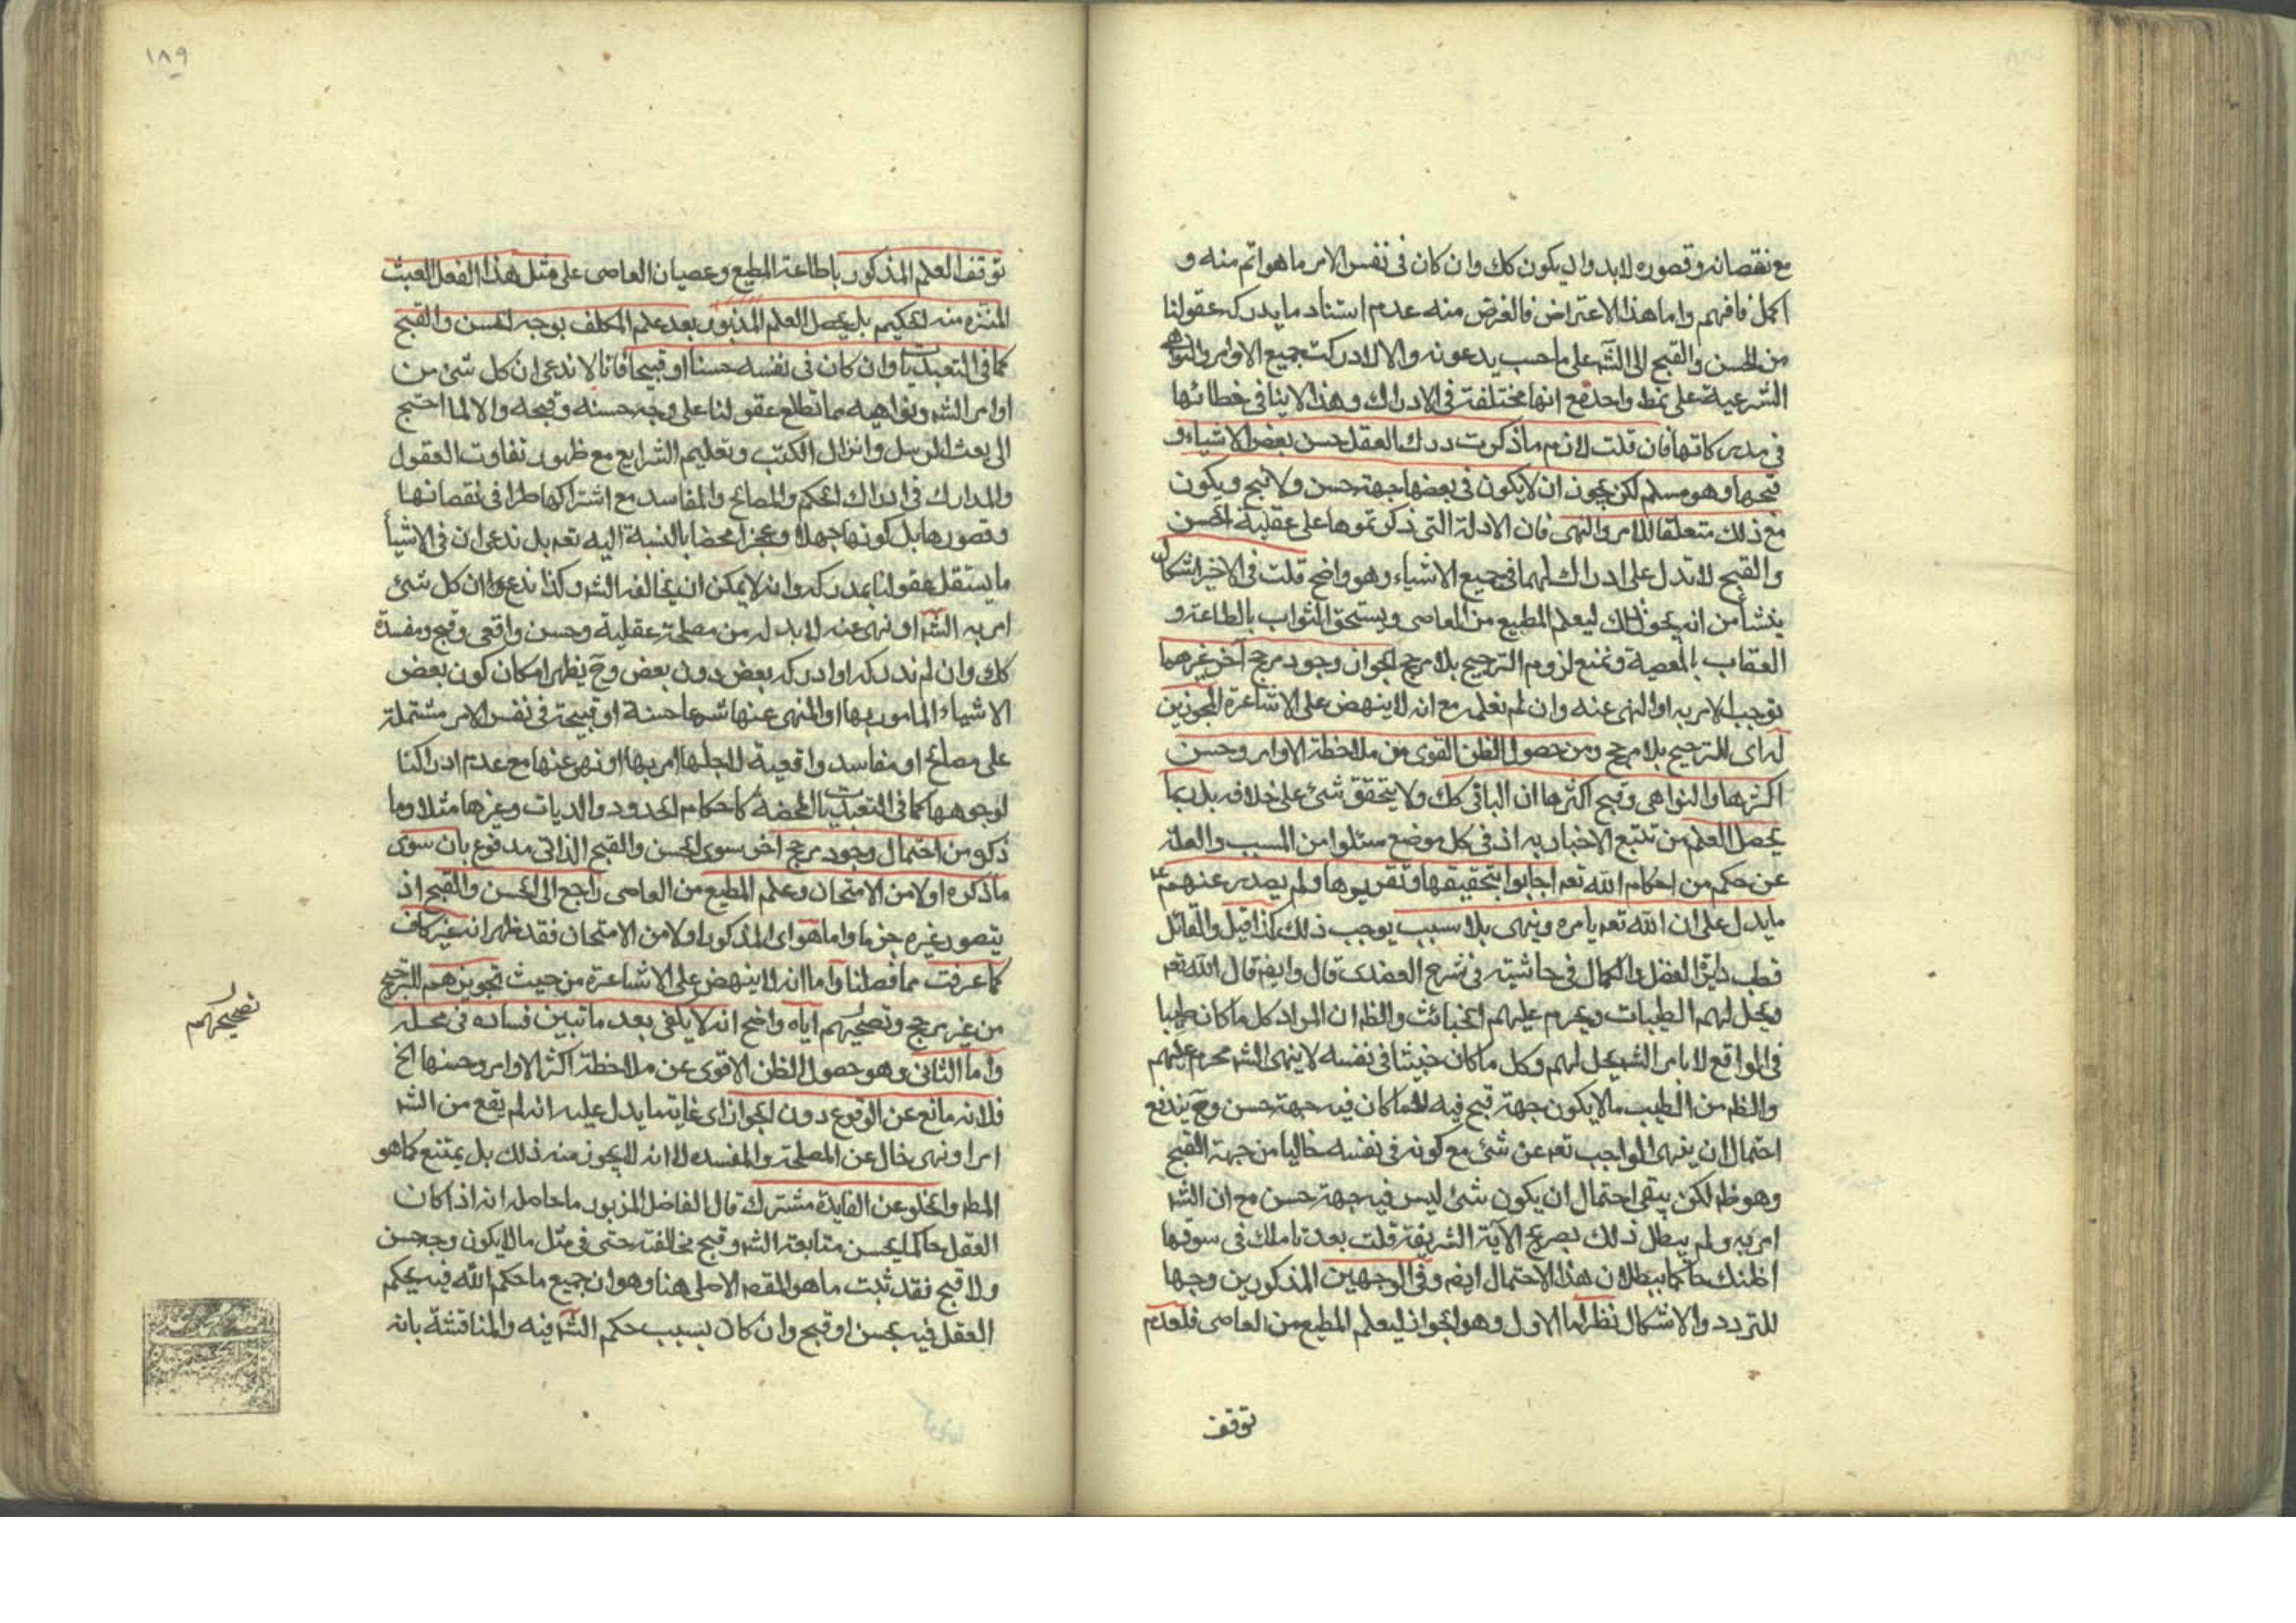 مع نقصانه وقصوره لابد وان يكون كك وان كان فى نفس الامر ما هو اتم منه و
اكمل فافهم واما هذا الاعتراض فالغرض منه عدم استناد ما يدركه عقولنا
من الحسن والقبح الى الشر على ما حسب يدعونه والا لادركت جميع الاوامر والنواهى
الشرعية على نمط واحد مع انها مختلفة فى الادراك وهذا لا ينافى خطائها
فى مدركاتها فان قلت لازم ما ذكرت درك العقل حسن بعض الاشياء و
قبحها وهو مسلم لكن يجوز ان لا يكون فى بعضها جهة حسن ولا قبح ويكون
مع ذلك متعلقا للامر والنهى فان الادلة التى ذكرتموها على عقلية الحسن
والقبح لا تدل على ادراك لهما فى جميع الاشياء وهو واضح قلت فى الاخير اشكال
ينشأ من انه يجوز ذلك ليعلم المطيع من العاصى ويستحق الثواب بالطاعة و
العقاب بالمعصية ونمنع لزوم الترجيح بلا مرجح لجواز وجود مرجح آخر غيرهما
يوجب الامر به او النهى عنه وان لم نعلمه مع انه لا ينهض على الاشاعرة المجوزين
له اى للترجيح بلا مرجح ومن حصول الظن القوى من ملاحظة الاوامر وحسن
اكثرها والنواهى وقبح اكثرها ان الباقى كك ولا يتحقق شئ على خلافه بل ربما
يحصل العلم من تتبع الاخبار به اذ فى كل موضع سئلوا من السبب والعلة
عن حكم من احكام الله تعم اجابوا بتحقيقها وتقريرها ولم يصدر عنهم ع
ما يدل على ان الله تعم يامره وينهى بلا سبب يوجب ذلك كذا قيل والقائل
قطب دايرة الفضل والكمال فى حاشيته فى شرح العضدى قال وايضم قال الله تعم
ويحل لهم الطيبات ويحرم عليهم الخبائث والظم ان المراد كل ما كان طيبا
فى الواقع لا بامر الشر يحل لهم وكل ما كان خبيثا فى نفسه لا بنهى الشر محرم عليهم
والظم من الطيب ما لا يكون جهة قبح فيه لا ما كان فيه جهة حسن وح يندفع
احتمال ان ينهى الواجب تعم عن شئ مع كونه فى نفسه خاليا من جهة القبح
وهو ظم لكن يبقى احتمال ان يكون شئ ليس فيه جهة حسن مع ان الشر
امر به ولم يبطل ذلك بصريح الآية الشريفة قلت بعد تاملك فى سوقها
اظنك حاكما ببطلان هذا الاحتمال ايضم وفى الوجهين المذكورين وجها
للتردد والاشكال نظر اما الاول وهو الجواز ليعلم المطيع من العاصى فلعدم
توقف
١٨٩
توقف العلم المذكور باطاعة المطيع وعصيان العاصى على مثل هذا الفعل العبث
المنزه منه الحكيم بل يحصل العلم المزبور بعد علم المكلف بوجه الحسن والقبح
كما فى التعبديات وان كان فى نفسه حسنا او قبيحا فانا لا ندعى ان كل شئ من
اوامر الشر ونواهيه مما تطلع عقولنا على وجه حسنه وقبحه والا لما احتيج
الى بعث الرسل وانزال الكتب وتعليم الشرايع مع ظهور تفاوت العقول
والمدارك فى ادراك الحكم والمصالح والمفاسد مع اشتراكها طرا فى نقصانها
وقصورها بل كونها جهلا وعجزا محضا بالنسبة اليه تعم بل ندعى ان فى الاشيأ
ما يستقل عقولنا بمدركه وانه لا يمكن ان يخالفه الشر وكذا ندعى ان كل شئ
امر به الشر او نهى عنه لا بد له من مصلحة عقلية وحسن واقعى وقبح ومفسدة
كك وان لم ندركه او ادركه بعض دون بعض وح يظهر امكان كون بعض
الاشياء المامور بها او المنهى عنها شرعا حسنة او قبيحة فى نفس الامر مشتملة
على مصالح او مفاسد واقعية لاجلها امر بها او نهى عنها مع عدم ادراكنا
لوجوهها كما فى التعبديات المحضة كاحكام الحدود والديات وغيرها مثلا وما
ذكره من احتمال وجود مرجح آخر سوى الحسن والقبح الذاتى مدفوع بان سوى
ما ذكره اولا من الامتحان وعلم المطيع من العاصى راجع الى الحسن والقبح اذ
يتصور غيره جزما واما هو اى المذكور اولا من الامتحان فقد ظهر انه غير كاف
كما عرفت مما فصلنا واما انه لا ينهض على الاشاعرة من حيث تجويزهم للترجيح
من غير مرجح وتصحيحهم اياه واضح انه لا يلغى بعد ما تبين فساده فى محله
تصحيحهم
واما الثانى وهو حصول الظن الاقوى عن ملاحظة اكثر الاوامر وحسنها الخ
فلانه مانع عن الوقوع دون الجواز اى غاية ما يدل عليه انه لم يقع من الشر
امر او نهى خال عن المصلحة والمفسدة لا انه لا يجوز منه ذلك بل يمتنع كما هو
المطم والخلو عن الفايدة مشترك قال الفاضل المزبور ما حاصله انه اذا كان
العقل حاكما بحسن متابعة الشر وقبح مخالفته حتى فى مثل ما لا يكون وجه حسن
ولا قبح فقد ثبت ما هو المقصم الاصلى هنا وهو ان جميع ما حكم الله فيه يحكم
العقل فيه بحسن او قبح وان كان بسبب حكم الشر فيه والمناقشة بانه